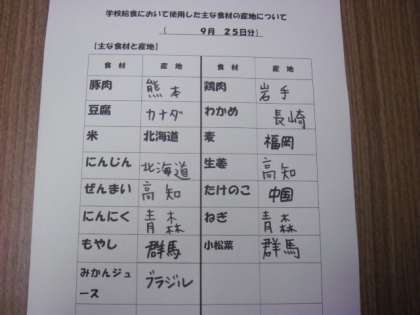 学校給食において使用した主な食材の産地について
( 9月 25日分)
【主な食材と産地】
食材 産地 食材 産地
豚肉 熊本 鶏肉 岩手
豆腐 カナダ わかめ 長崎
米 北海道 麦 福岡
にんじん 北海道 生姜 高知
ぜんまい 高知 たけのこ 中国
にんにく 青森 ねぎ 青森
もやし 群馬 小松菜 群馬
みかんジュ
ース ブラジル